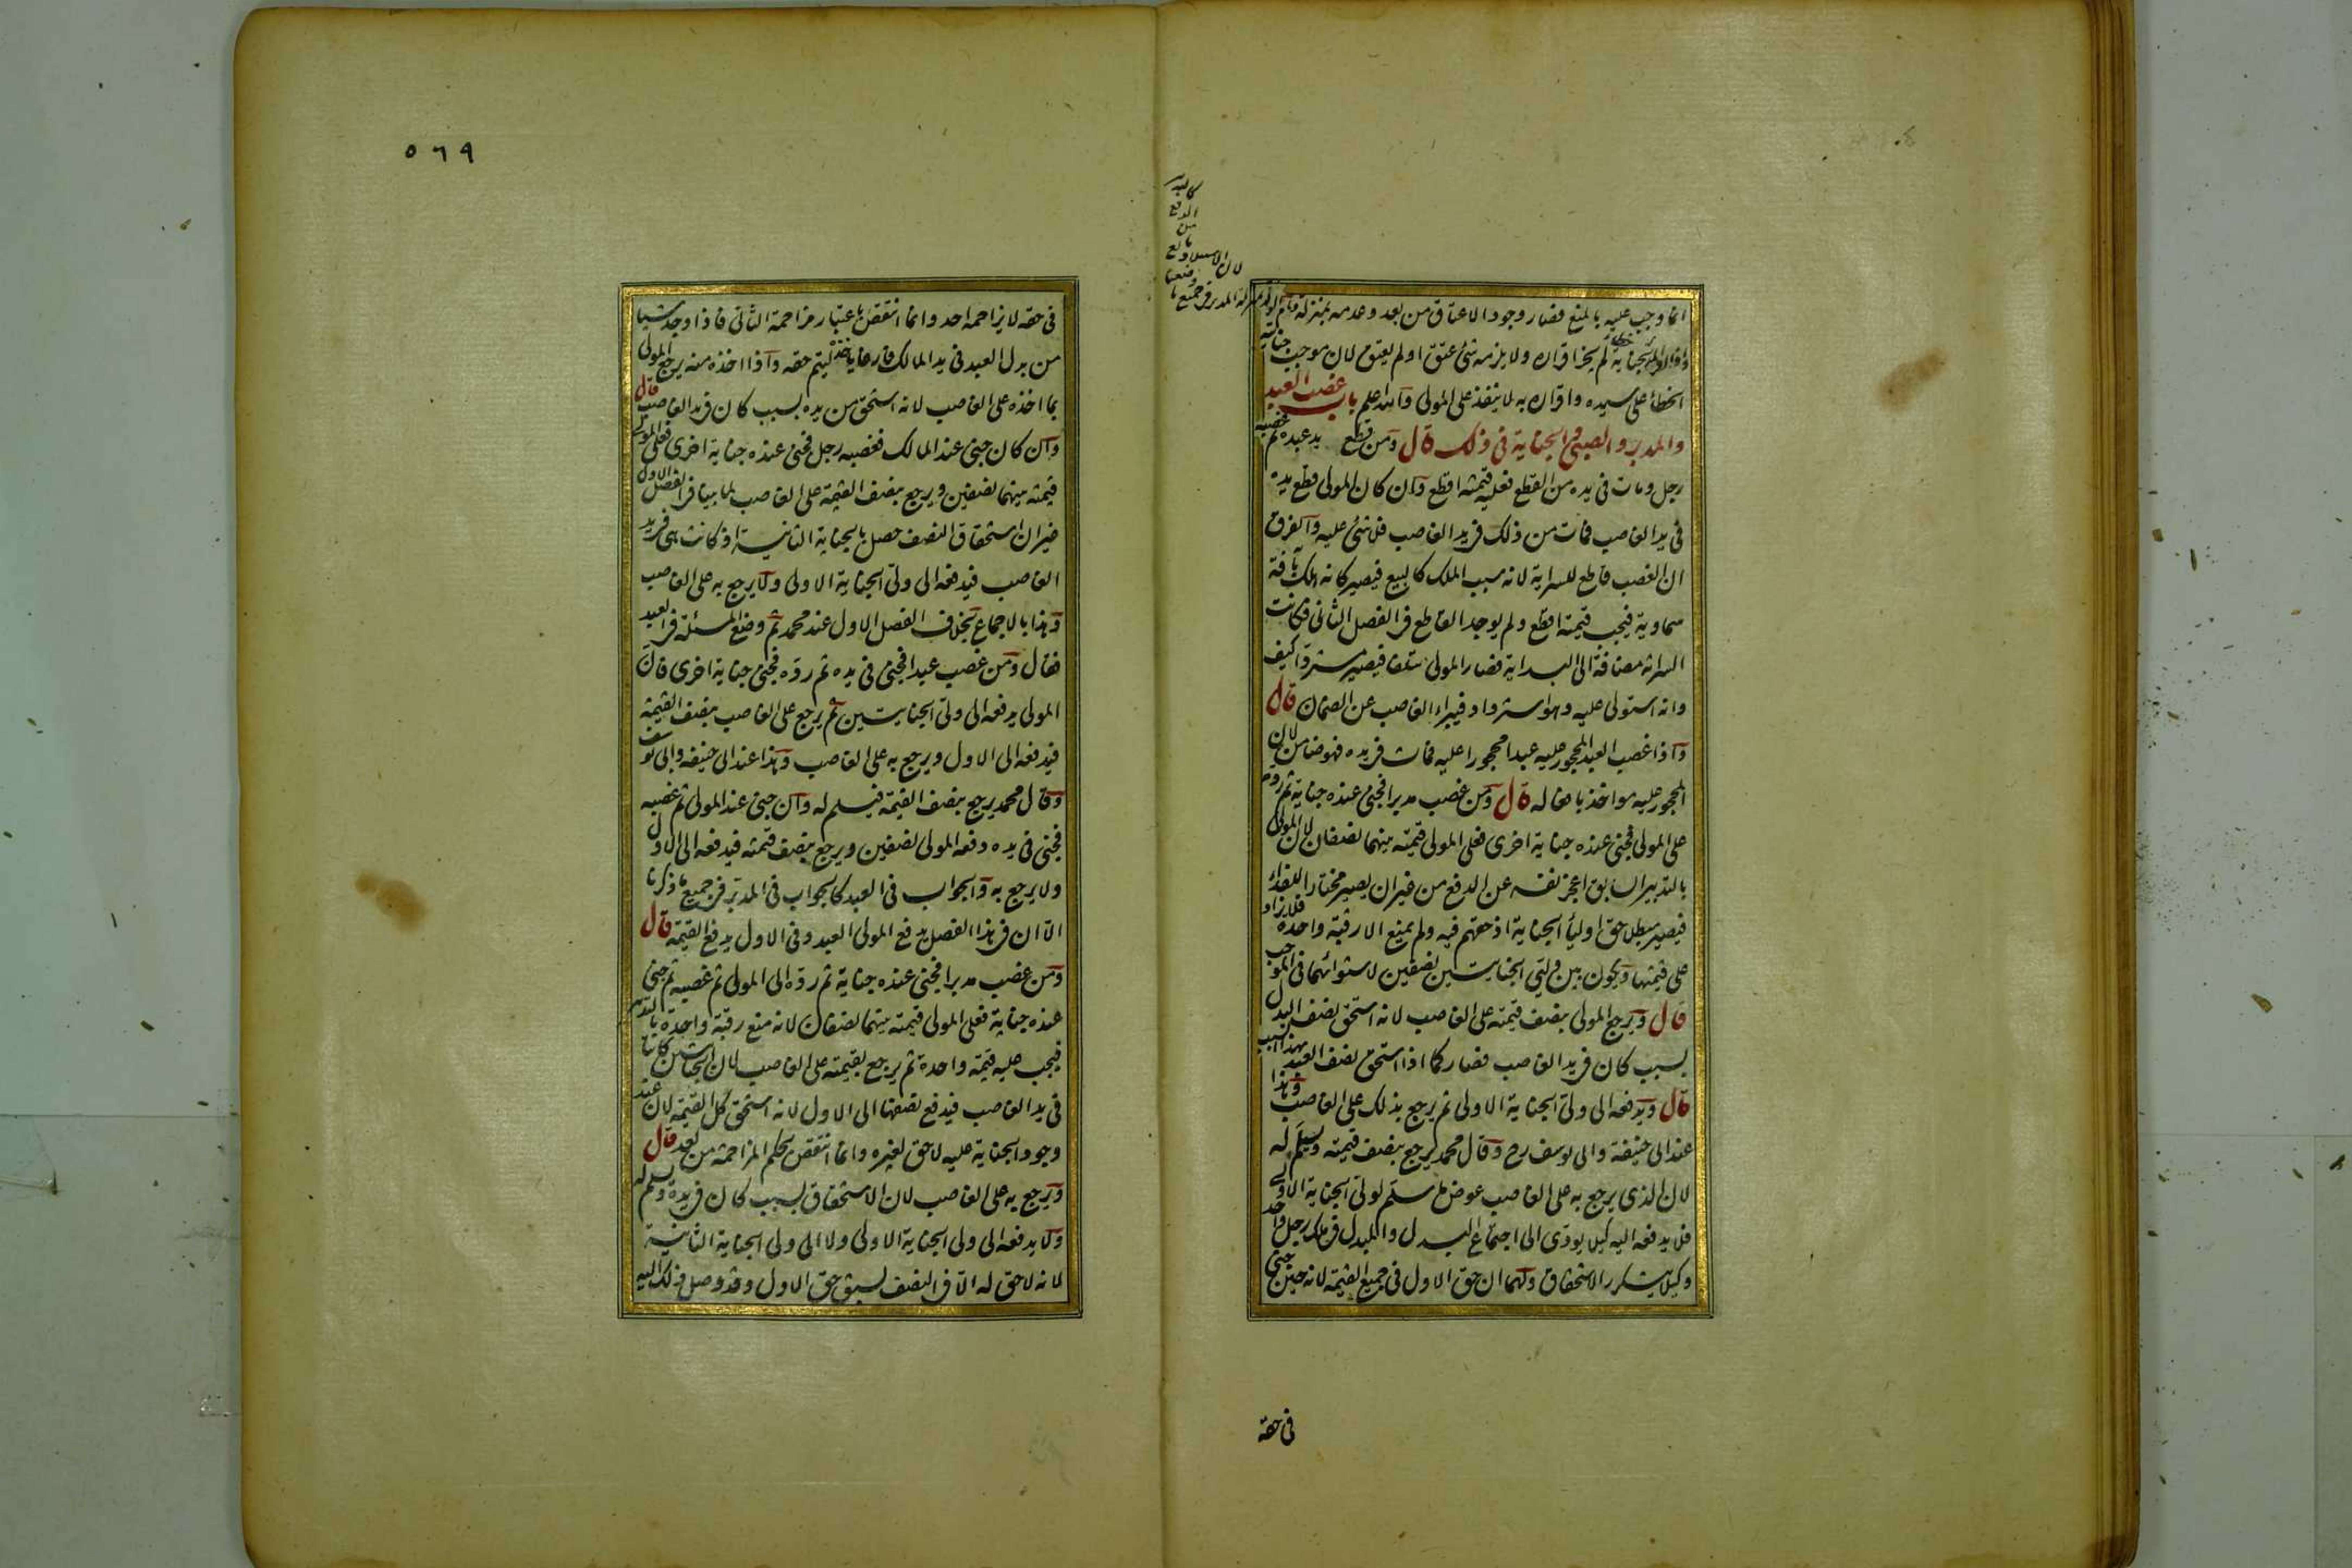 انما وجب عليه بالمنع فصار وجود الاعتاق من بعد وعدمه بمنزلة وام الولد بمنزلة المدبر فى جميع ما
وصفنا
لان الاستيلاد مانع
من
الدفع
كالتدبير
واذا اقر المدبر بجناية خطأ لم يجز اقراره ولا يلزمه شئ عتق او لم يعتق لان موجب جناية
الخطاء على سيده واقراره به لا ينفذ على المولى والله اعلم باب غصب العبد
والمدبر والصبى والجناية فى ذلك قال ومن قطع يد عبده ثم غصبه
رجل ومات فى يده من القطع فعليه قيمته اقطع وان كان المولى قطع يده
فى يد الغاصب فمات من ذلك فى يد الغاصب فلا شئ عليه والفرق
ان الغصب قاطع للسراية لانه سبب الملك كالبيع فيصير كانه هلك بآفة
سماوية فيجب قيمته اقطع ولم يوجد القاطع فى الفصل الثانى فكانت
السراية مضافة الى البداية فصار المولى متلفا فيصير مستردا كيف
وانه استولى عليه وهو استرداد فيبراء الغاصب عن الضمان قال
واذا غصب العبد المحجور عليه عبدا محجورا عليه فمات فى يده فهو ضامن لان
المحجور عليه مواخذ بافعاله قال ومن غصب مدبرا فجنى عنده جناية ثم رده
على المولى فجنى عنده جناية اخرى فعلى المولى قيمته بينهما نصفان لان المولى
بالتدبير السابق اعجز نفسه عن الدفع من غير ان يصير مختارا للفداء
فيصير مبطلا حق اولياء الجناية اذ حقهم فيه ولم يمنع الا رقبة واحدة فلا يزاد
على قيمتها ويكون بين وليى الجنايتين نصفين لاستوائهما فى الموجب
قال ويرجع المولى بنصف قيمته على الغاصب لانه استحق نصف البدل
بسبب كان فى يد الغاصب فصار كما اذا استحق نصف العبد بهذا السبب
قال ويدفعه الى ولى الجناية الاولى ثم يرجع بذلك على الغاصب وهذا
عند ابى حنيفة وابى يوسف رح وقال محمد يرجع بنصف قيمته ويسلم له
لان الذى يرجع به على الغاصب عوض ما سلم لولى الجناية الاولى
فلا يدفعه اليه كيلا يودى الى اجتماع البدل والمبدل فى ملك رجل واحد
وكيلا يتكرر الاستحقاق ولهما ان حق الاول فى جميع القيمة لانه حين جنى
فى حقه
٥٦٩
فى حقه لا يزاحمه احد وانما انتقص باعتبار مزاحمة الثانى فاذا وجد شيئا
من بدل العبد فى يد المالك فارغا ياخذه ليتم حقه واذا اخذه منه يرجع المولى
بما اخذه على الغاصب لانه استحق من يده بسبب كان فى يد الغاصب قال
وان كان جنى عند المالك فغصبه رجل فجنى عنده جناية اخرى فعلى المولى
قيمته بينهما نصفين ويرجع بنصف القيمة على الغاصب لما بينا فى الفصل الاول
غير ان استحقاق النصف حصل بالجناية الثانية اذ كانت هى فى يد
الغاصب فيدفعه الى ولى الجناية الاولى ولا يرجع به على الغاصب
وهذا بالاجماع بخلاف الفصل الاول عند محمد ثم وضع المسئلة فى العبد
فقال ومن غصب عبدا فجنى فى يده ثم رده فجنى جناية اخرى فان
المولى يدفعه الى ولى الجنايتين ثم يرجع على الغاصب بنصف القيمة
فيدفعه الى الاول ويرجع به على الغاصب وهذا عند ابى حنيفه وابى يوسف
وقال محمد يرجع بنصف القيمة فيسلم له وان جنى عند المولى ثم غصبه
فجنى فى يده دفعه المولى نصفين ويرجع بنصف قيمته فيدفعه الى الاول
ولا يرجع به والجواب فى العبد كالجواب فى المدبر فى جميع ما ذكرنا
الا ان فى هذا الفصل يدفع المولى العبد وفى الاول يدفع القيمة قال
ومن غصب مدبرا فجنى عنده جناية ثم رده الى المولى ثم غصبه ثم جنى
عنده جناية فعلى المولى قيمته بينهما نصفان لانه منع رقبة واحدة بالتدبير
فيجب عليه قيمة واحدة ثم يرجع بقيمته على الغاصب لان الجنايتين كانتا
فى يد الغاصب فيدفع نصفها الى الاول لانه استحق كل القيمة لان عند
وجود الجناية عليه لا حق لغيره وانما انتقص بحكم المزاحمة من بعد قال
ويرجع به على الغاصب لان الاستحقاق بسبب كان فى يده ويسلم له
ولا يدفعه الى ولى الجناية الاولى ولا الى ولى الجناية الثانية
لانه لا حق له الا فى النصف لسبق حق الاول وقد وصل ذلك اليه